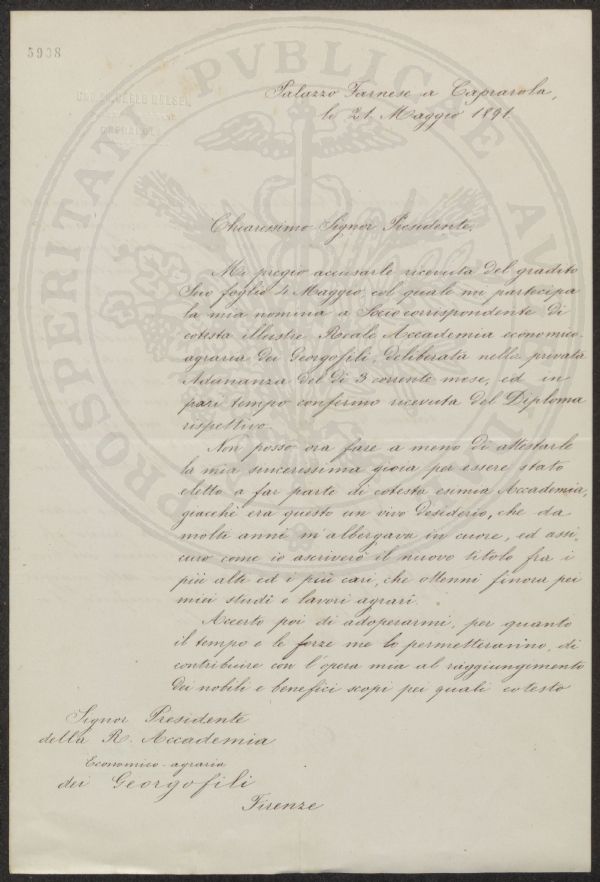 5938
PROSPERITATI PVBLICAE AVGENDAE
Palazzo Farnese a Caprarola,
lì 21 Maggio 1891
Chiarissimo Signor Presidente,
Mi pregio accusarle ricevuta del gradito
Suo foglio 4 Maggio, col quale mi partecipa
la mia nomina a Socio corrispondente di
cotesta illustre Reale Accademia economico-
agraria dei Georgofili, deliberata nella privata
Adunanza del dì 3 corrente mese, ed in
pari tempo confermo ricevuta del Diploma
rispettivo.
Non posso ora fare a meno di attestarle
la mia sincerissima gioia per essere stato
eletto a far parte di cotesta esimia Accademia,
giacchè era questo un vivo desiderio, che da
molti anni m'albergava in cuore, ed assi,
curo come io ascriverò il nuovo titolo fra i
più alti ed i più cari, che ottenni finora pei
miei studi e lavori agrari.
Accerto poi di adoperarmi, per quanto
il tempo e le forze me lo permetteranno, di
contribuire con l'opera mia al raggiungimento
dei nobili e benefici scopi pei quali cotesto
Signor Presidente
della R. Accademia
Economico-agraria
dei Georgofili
Firenze